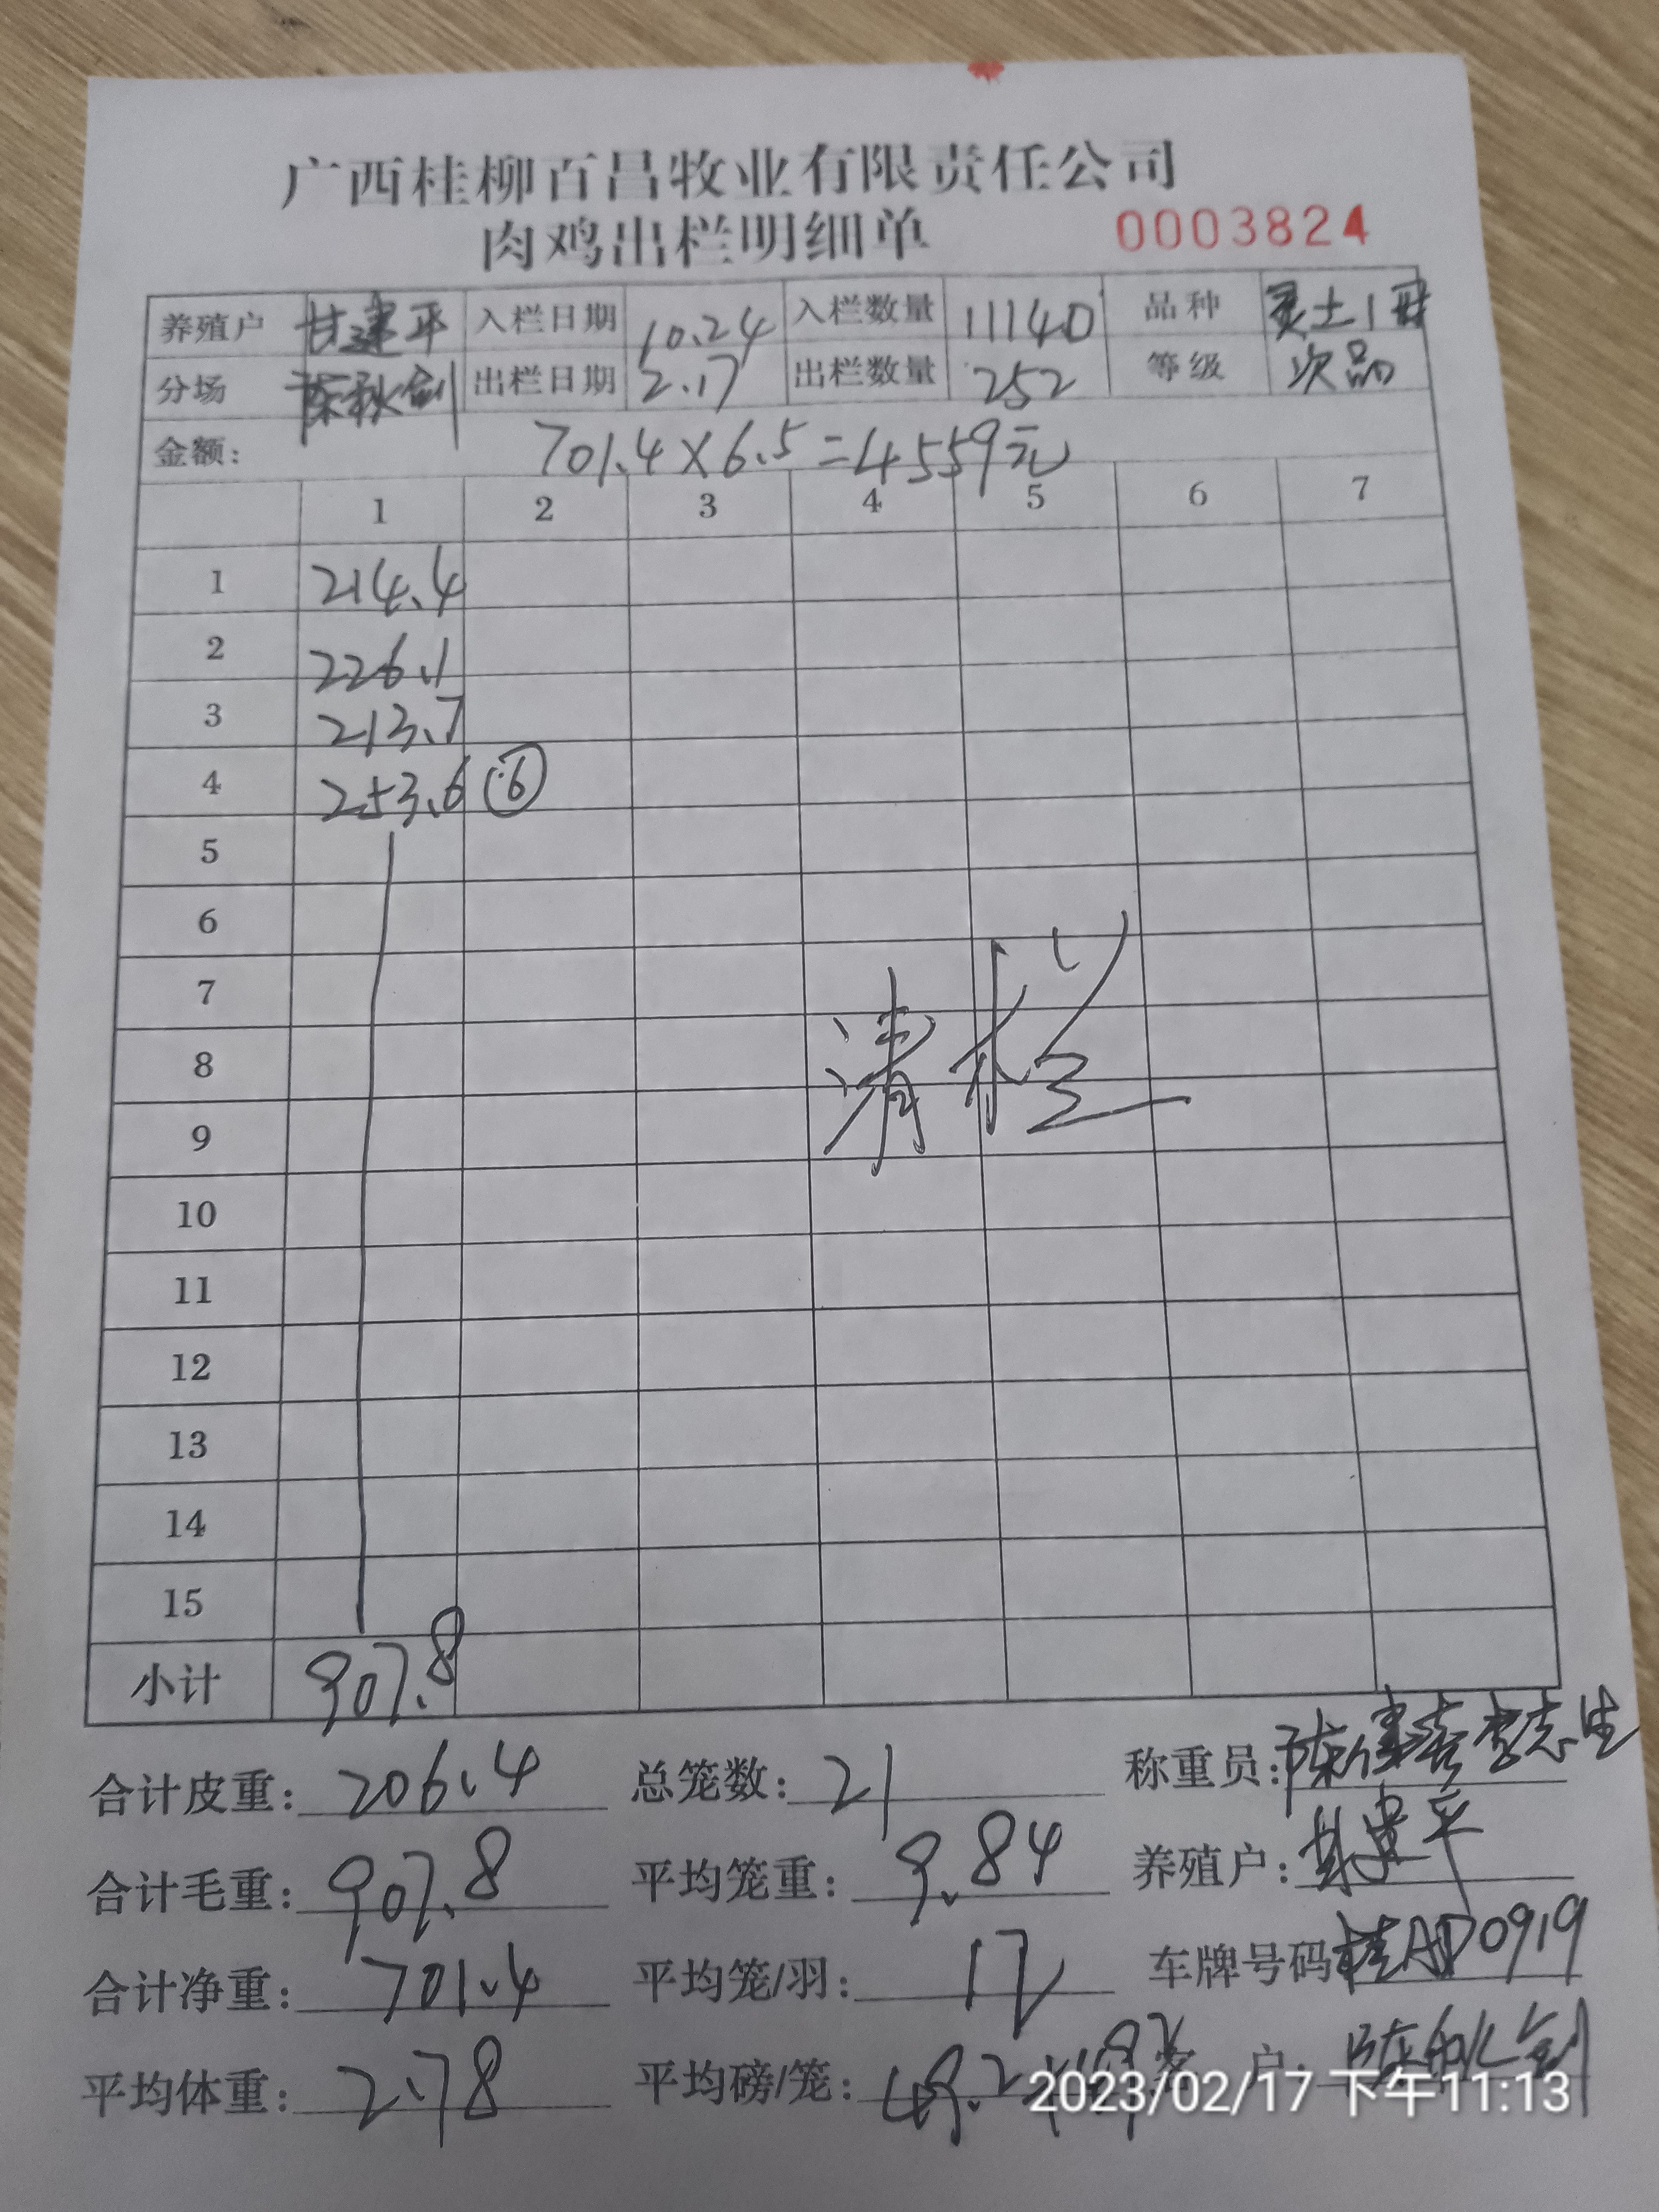 广西桂柳百昌牧业有限责任公司
肉鸡出栏明细单 0003824
养殖户 甘建平 入栏日期 10.24 入栏数量 11140 品种 灵土1号
分场 陈秋剑 出栏日期 2.17 出栏数量 252 等级 次品
金额: 701.4×6.5=4559元
1 2 3 4 5 6 7
1 214.4
2 226.1
3 213.7
4 253.6 ⑥
5
6
7
8 清栏
9
10
11
12
13
14
15
小计 907.8
合计皮重: 206.4 总笼数: 21 称重员: 李志生
合计毛重: 907.8 平均笼重: 9.84 养殖户: 甘建平
合计净重: 701.4 平均笼/羽: 12 车牌号码 桂AD0919
平均体重: 2.78 平均磅/笼: 客户: 陈秋剑
2023/02/17 下午11:13